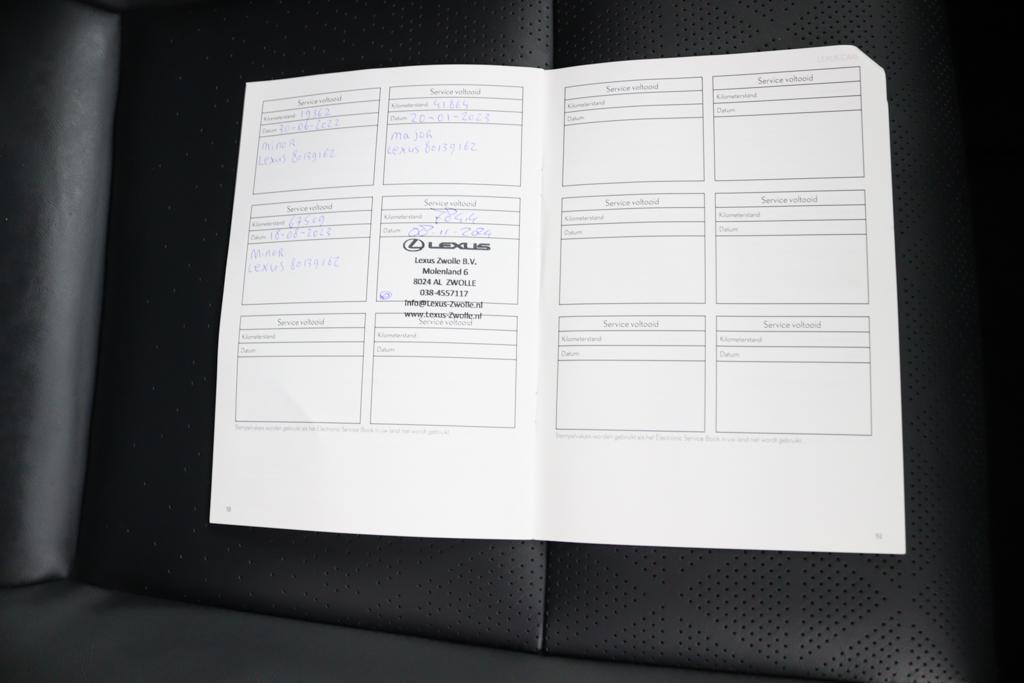 LEXUS CARE
Service voltooid
Kilometerstand: 19362
Datum: 30-06-2022
Minor
Lexus 80139162
Service voltooid
Kilometerstand: 41864
Datum: 20-01-2023
Major
Lexus 80139162
Service voltooid
Kilometerstand: 67509
Datum: 18-08-2023
Minor
Lexus 80139162
Service voltooid
Kilometerstand:
Datum: 08-11-2024
LEXUS
Lexus Zwolle B.V.
Molenland 6
8024 AL ZWOLLE
038-4557117
info@Lexus-Zwolle.nl
www.Lexus-Zwolle.nl
Service voltooid
Kilometerstand:
Datum:
Service voltooid
Kilometerstand:
Datum:
Stempelvakjes worden gebruikt als het Electronic Service Book in uw land niet wordt gebruikt.
18
Service voltooid
Kilometerstand:
Datum:
Service voltooid
Kilometerstand:
Datum:
Service voltooid
Kilometerstand:
Datum:
Service voltooid
Kilometerstand:
Datum:
Service voltooid
Kilometerstand:
Datum:
Service voltooid
Kilometerstand:
Datum:
Stempelvakjes worden gebruikt als het Electronic Service Book in uw land niet wordt gebruikt.
19